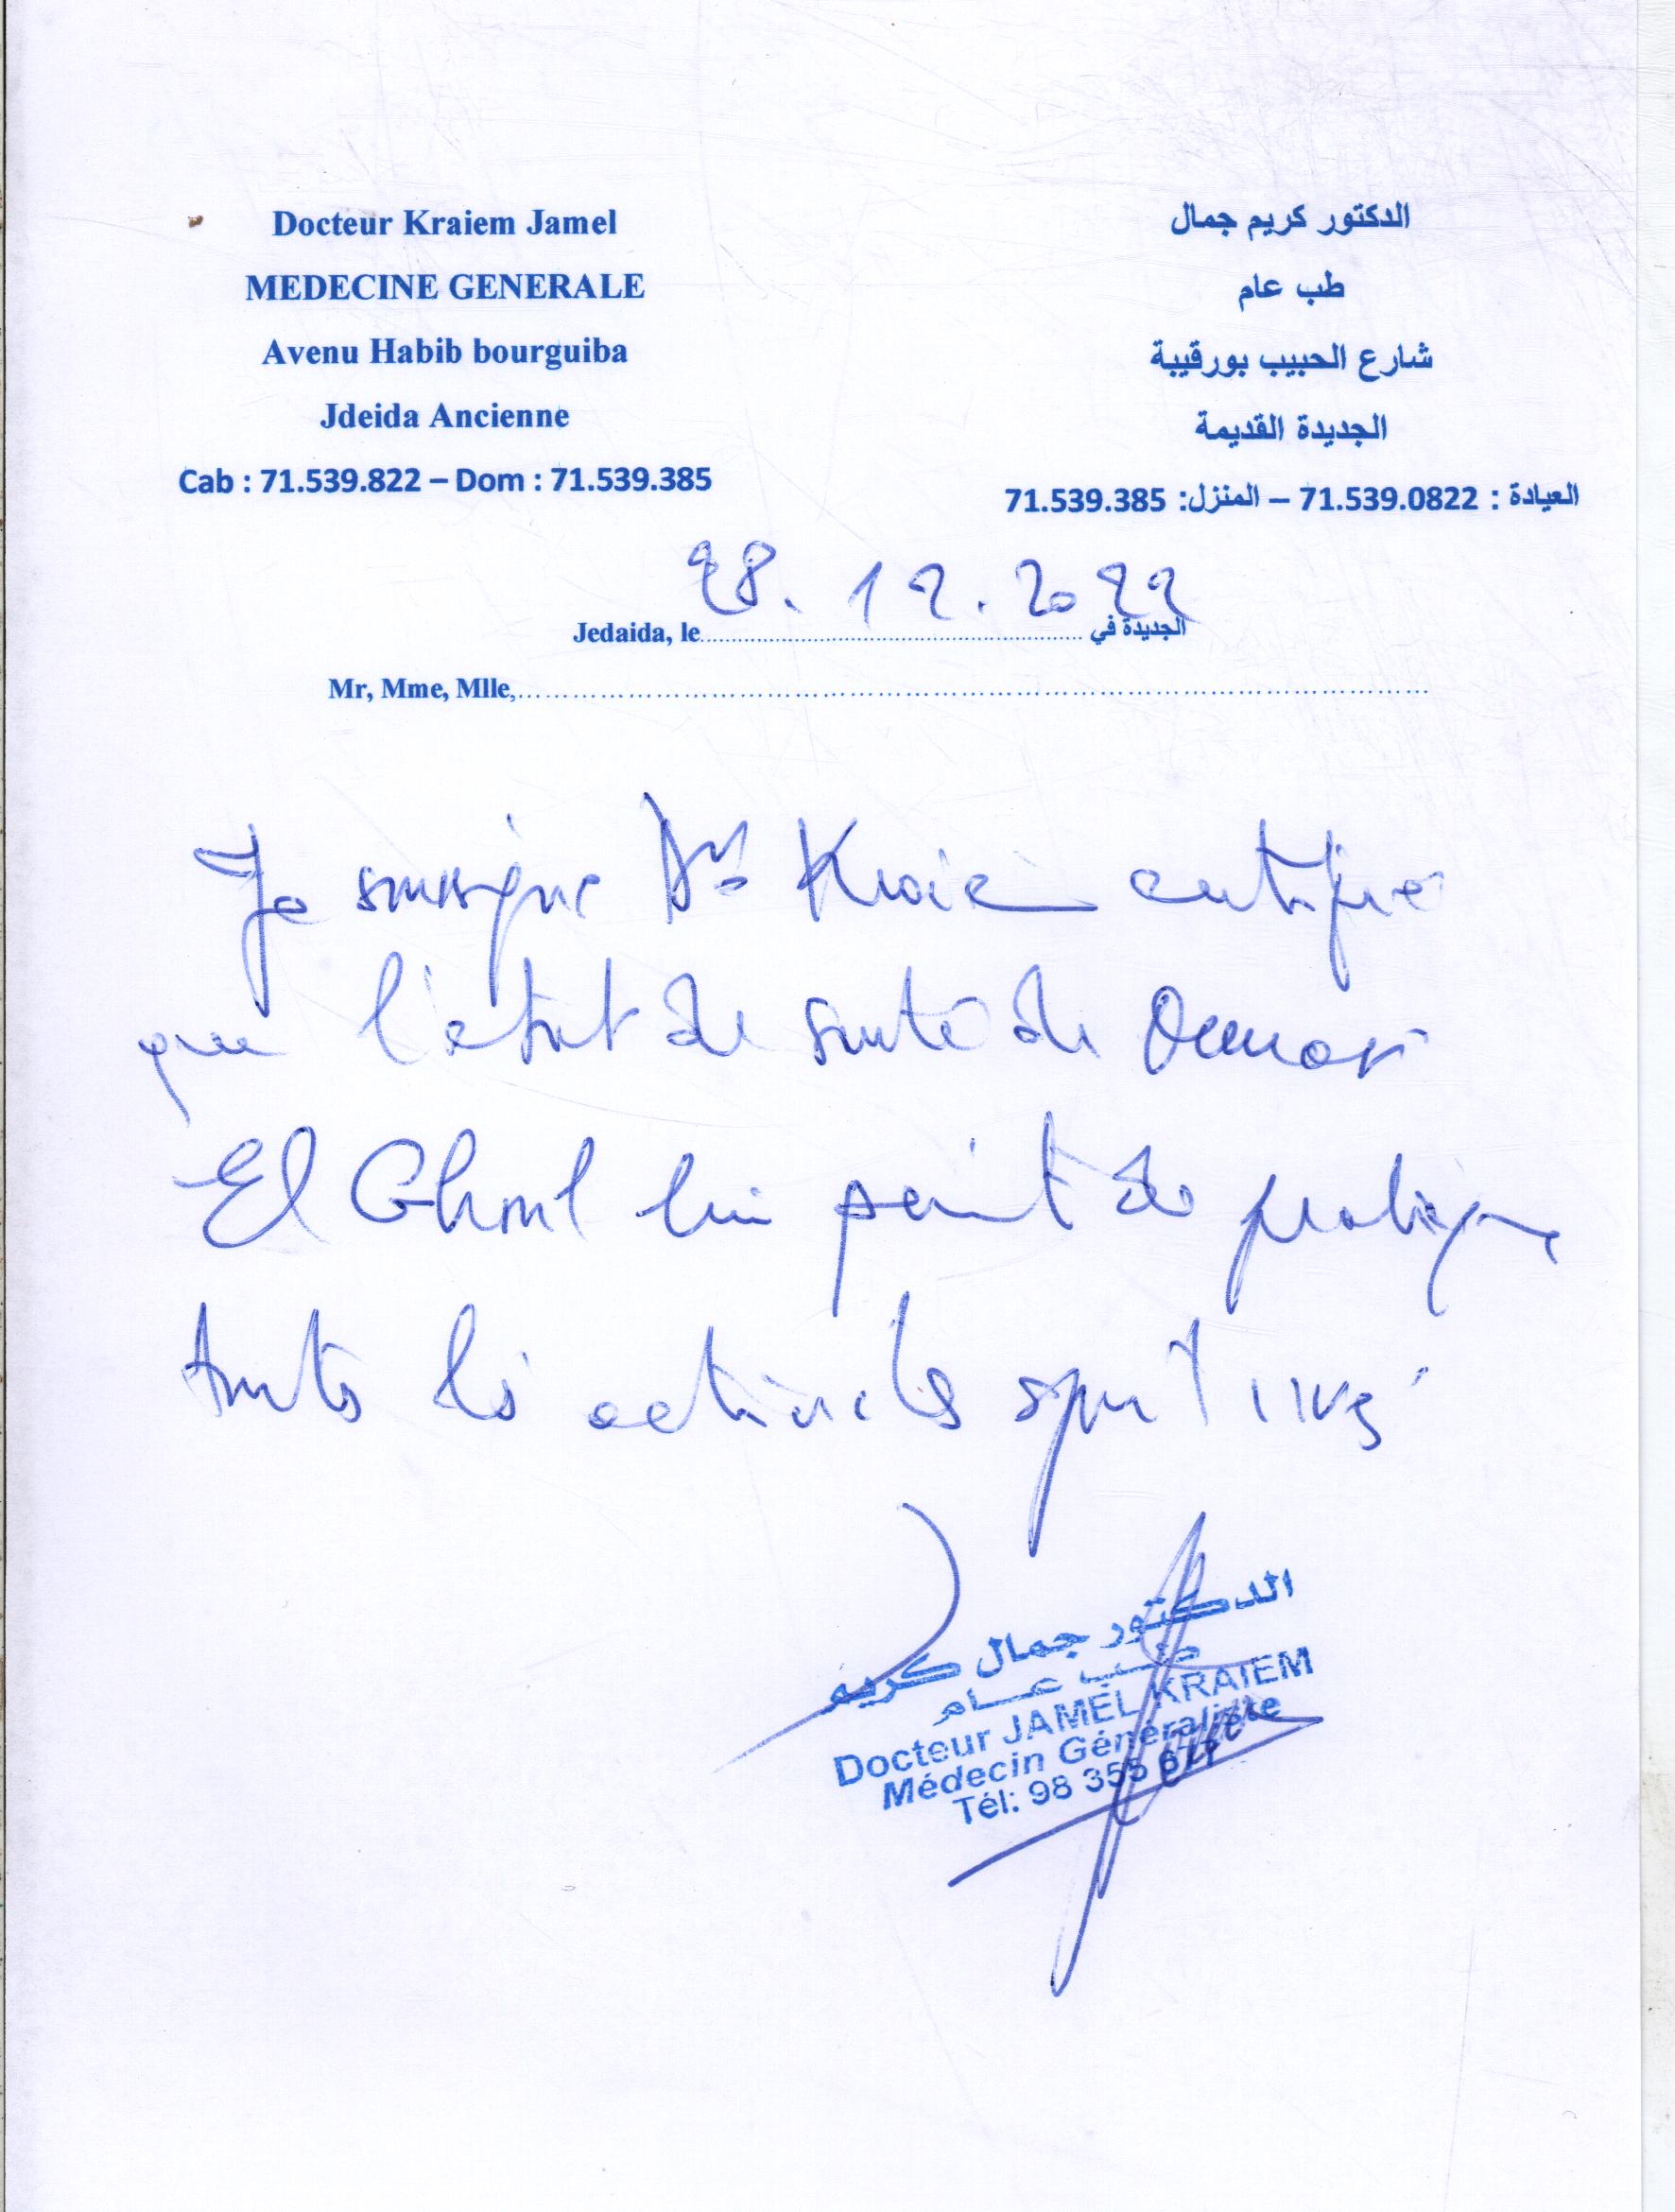 Docteur Kraiem Jamel
MEDECINE GENERALE
Avenu Habib bourguiba
Jdeida Ancienne
Cab : 71.539.822 – Dom : 71.539.385
الدكتور كريم جمال
طب عام
شارع الحبيب بورقيبة
الجديدة القديمة
العيادة : 71.539.0822 – المنزل: 71.539.385
28.12.2022
Jedaida, le............................................ الجديدة في
Mr, Mme, Mlle,............................................
Je soussigné Dr Kraiem certifie
que l'état de santé de Oumar
El Ghoul lui permet de pratiquer
toutes les activités sportives
الدكتور جمال كريم
طب عام
Docteur JAMEL KRAIEM
Médecin Généraliste
Tél: 98 355